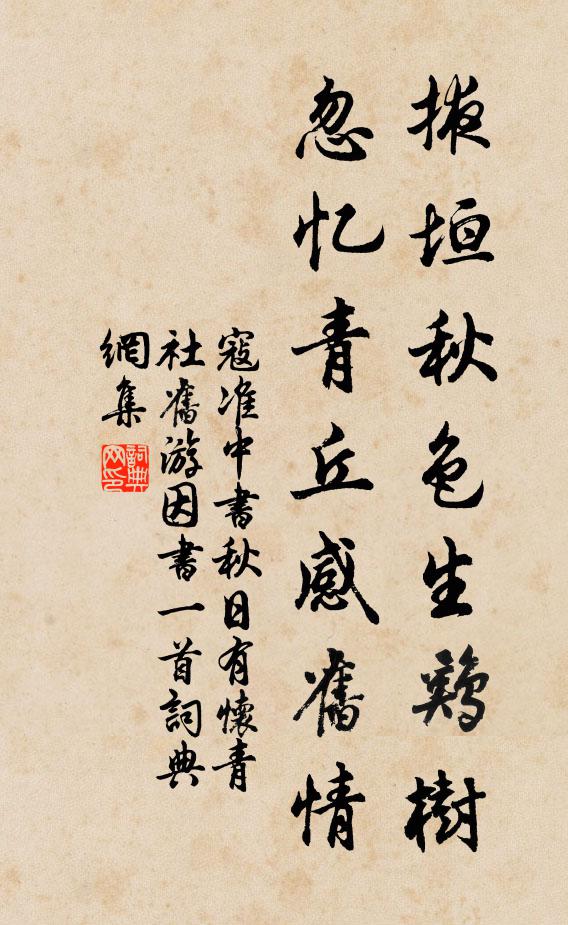 掖垣秋色生鷄樹
忽忆青丘感舊情
寇准中書秋日有懷青
社舊游因書一首詞典
網集
詞典
网印